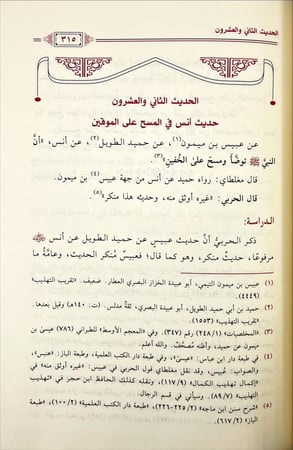 الحديث الثاني والعشرون
٣١٥
الحديث الثاني والعشرون
حديث أنس في المسح على الموقين
عن عبيس بن ميمون(١)، عن حميد الطويل(٢)، عن أنس، «أنَّ
النبيَّ ﷺ توضَّأ ومسحَ على الخُفين»(٣).
قال مغلطاي: رواه حميد عن أنس من جهة عبيس(٤) بن ميمون.
قال الحربي: «غيره أوثق منه، وحديثه هذا منكر»(٥).
الدراسة:
ذكر الحربيُّ أنَّ حديث عبيس عن حميد الطويل عن أنس
مرفوعًا، حديثٌ منكر، وهو كما قال؛ فعبيسٌ مُنكر الحديث، وعامَّةُ ما
(١) عبيس بن ميمون التيمي، أبو عبيدة الخزاز البصري العطار. ضعيف. «تقريب التهذيب»
(٤٤٤٩)
(٢) حميد بن أبي حميد الطويل، أبو عبيدة البصري، ثقةٌ مدلس. (ت: ١٤٠هـ) وقيل بعدها.
«تقريب التهذيب» (١٥٥٣).
(٣) «المخلصيات» (٢٤٨/١) رقم (٣٤٧). وفي «المعجم الأوسط» للطبراني (٧٨٦) عيسىٰ بن
ميمون عن حميد، وأظنه مُصحَّف. والله أعلم.
(٤) في طبعة دار ابن عباس: «عيسىٰ»، وفي طبعة دار الكتب العلمية، وطبعة الباز: «عنبس»،
والصواب: عُبيس. وقد نقل مغلطاي قول الحربي في عبيس: «غيره أوثق منه» في
«إكمال تهذيب الكمال» (١١٧/٩)، ونقله كذلك الحافظ ابن حجر في «تهذيب
التهذيب» (٨٩/٧). وسيأتي في قسم الرجال.
(٥) «شرح سنن ابن ماجه» (٢٢٥/٢-٢٢٦)، و«طبعة دار الكتب العلمية» (١٠٠/٢)، «طبعة
الباز» (٦١٧/٢).